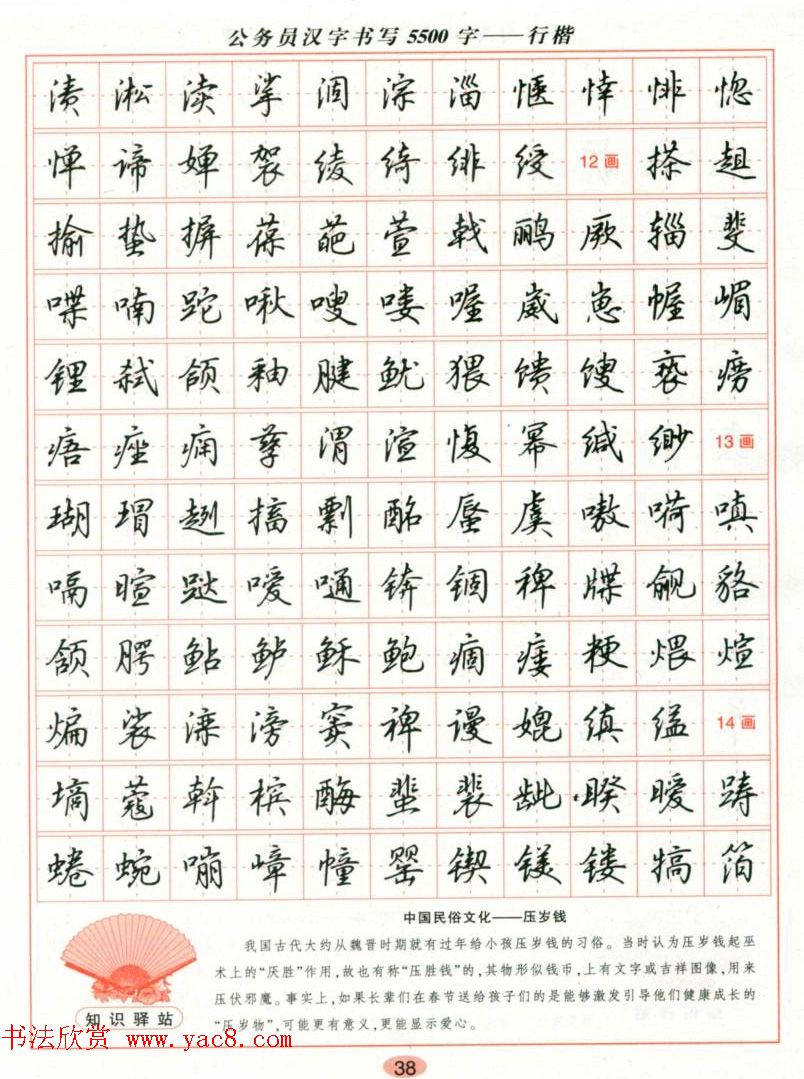 公务员汉字书写5500字——行楷
渍 淞 渎 挲 涸 淙 淄 惬 悻 悱 惚
惮 谛 婵 袈 绫 绮 绯 绶 12画 搽 趄
揄 蛰 摒 葆 葩 萱 戟 鹂 厥 辎 斐
喋 喃 跎 啾 嗖 喽 喔 崴 崽 幄 嵋
锂 弑 颌 釉 腱 鱿 猥 馈 馊 亵 痨
痦 痤 痛 孳 渭 渲 愎 幂 缄 缈 13画
瑚 瑁 趔 搞 剽 酩 蜃 虞 嗷 嗬 嗔
嗝 暄 跶 嗳 嗵 锛 锢 稗 牒 觎 貉
颔 腭 鲇 鲈 稣 鲍 痼 瘘 粳 煨 煊
煸 裟 溧 滂 窦 裨 谩 媲 缜 缢 14画
墒 蔻 斡 槟 酶 蜚 裴 龇 睽 暧 踌
蜷 蜿 嘣 嶂 幢 罂 锲 镁 镂 犒 箔
中国民俗文化——压岁钱
我国古代大约从魏晋时期就有过年给小孩压岁钱的习俗。当时认为压岁钱起巫
术上的“厌胜”作用,故也有称“压胜钱”的,其物形似钱币,上有文字或吉祥图像,用来
压伏邪魔。事实上,如果长辈们在春节送给孩子们的是能够激发引导他们健康成长的
“压岁物”,可能更有意义,更能显示爱心。
知识驿站
书法欣赏 www.yac8.com
38